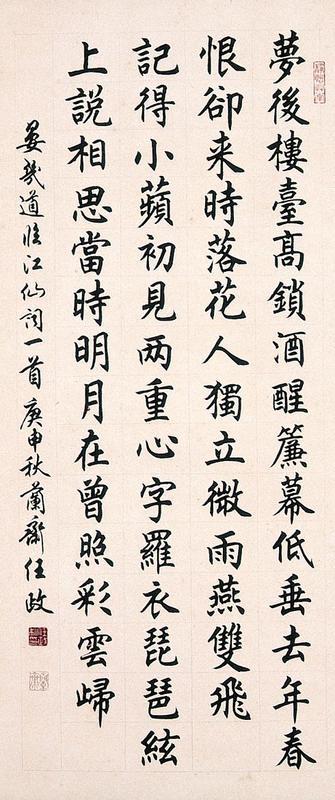 夢後樓臺高鎖酒醒簾幕低垂去年春
恨卻来時落花人獨立微雨燕雙飛
記得小蘋初見两重心字羅衣琵琶絃
上説相思當時明月在曾照彩雲歸
晏幾道臨江仙詞一首庚申秋蘭齋任政